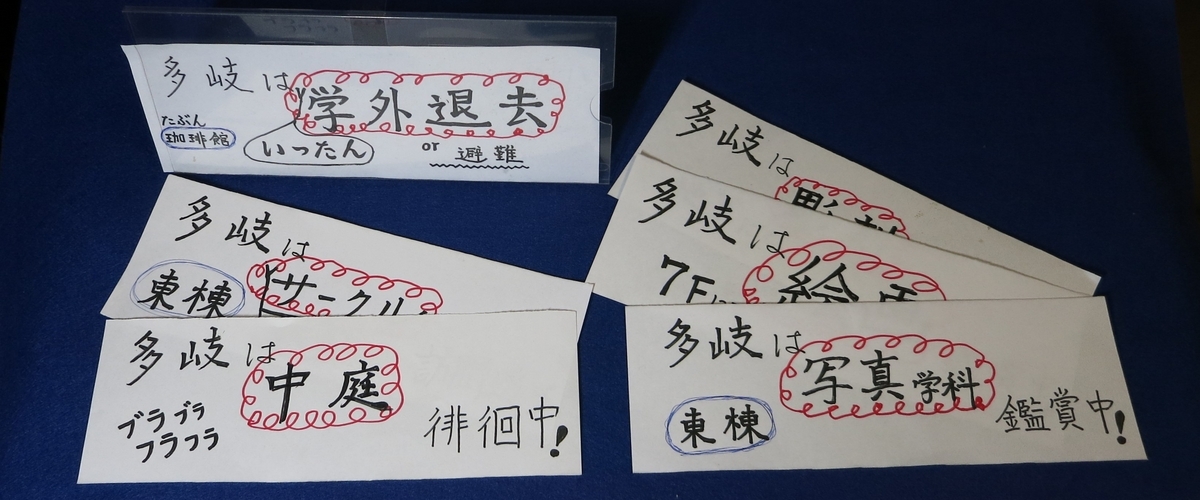 多岐は学外退去
たぶん
珈琲館
いったん
or 避難
多岐は
東棟 サークル
多岐は中庭
ブラブラ
フラフラ
徘徊中!
多岐は
多岐は
7F 絵
多岐は写真学科
東棟
鑑賞中!